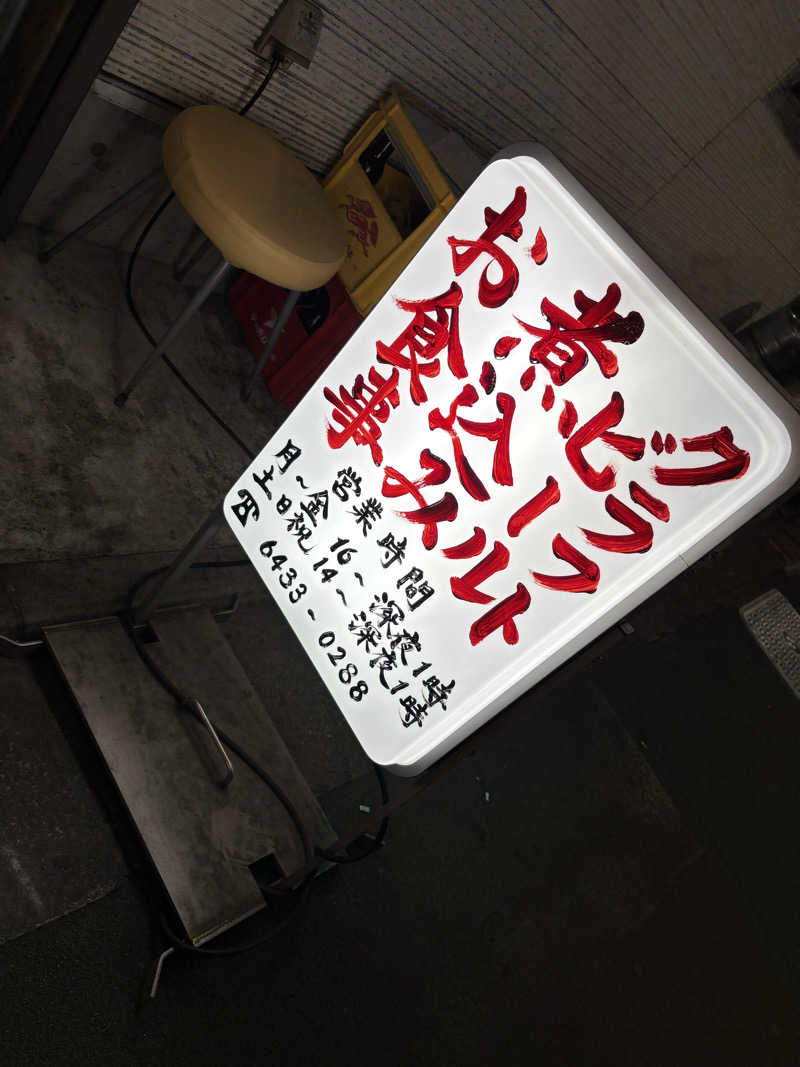 クラフト
ビール
煮込み
お食事
営業時間
月～金 16～深夜1時
土日祝 14～深夜1時
☎ 6433-0288